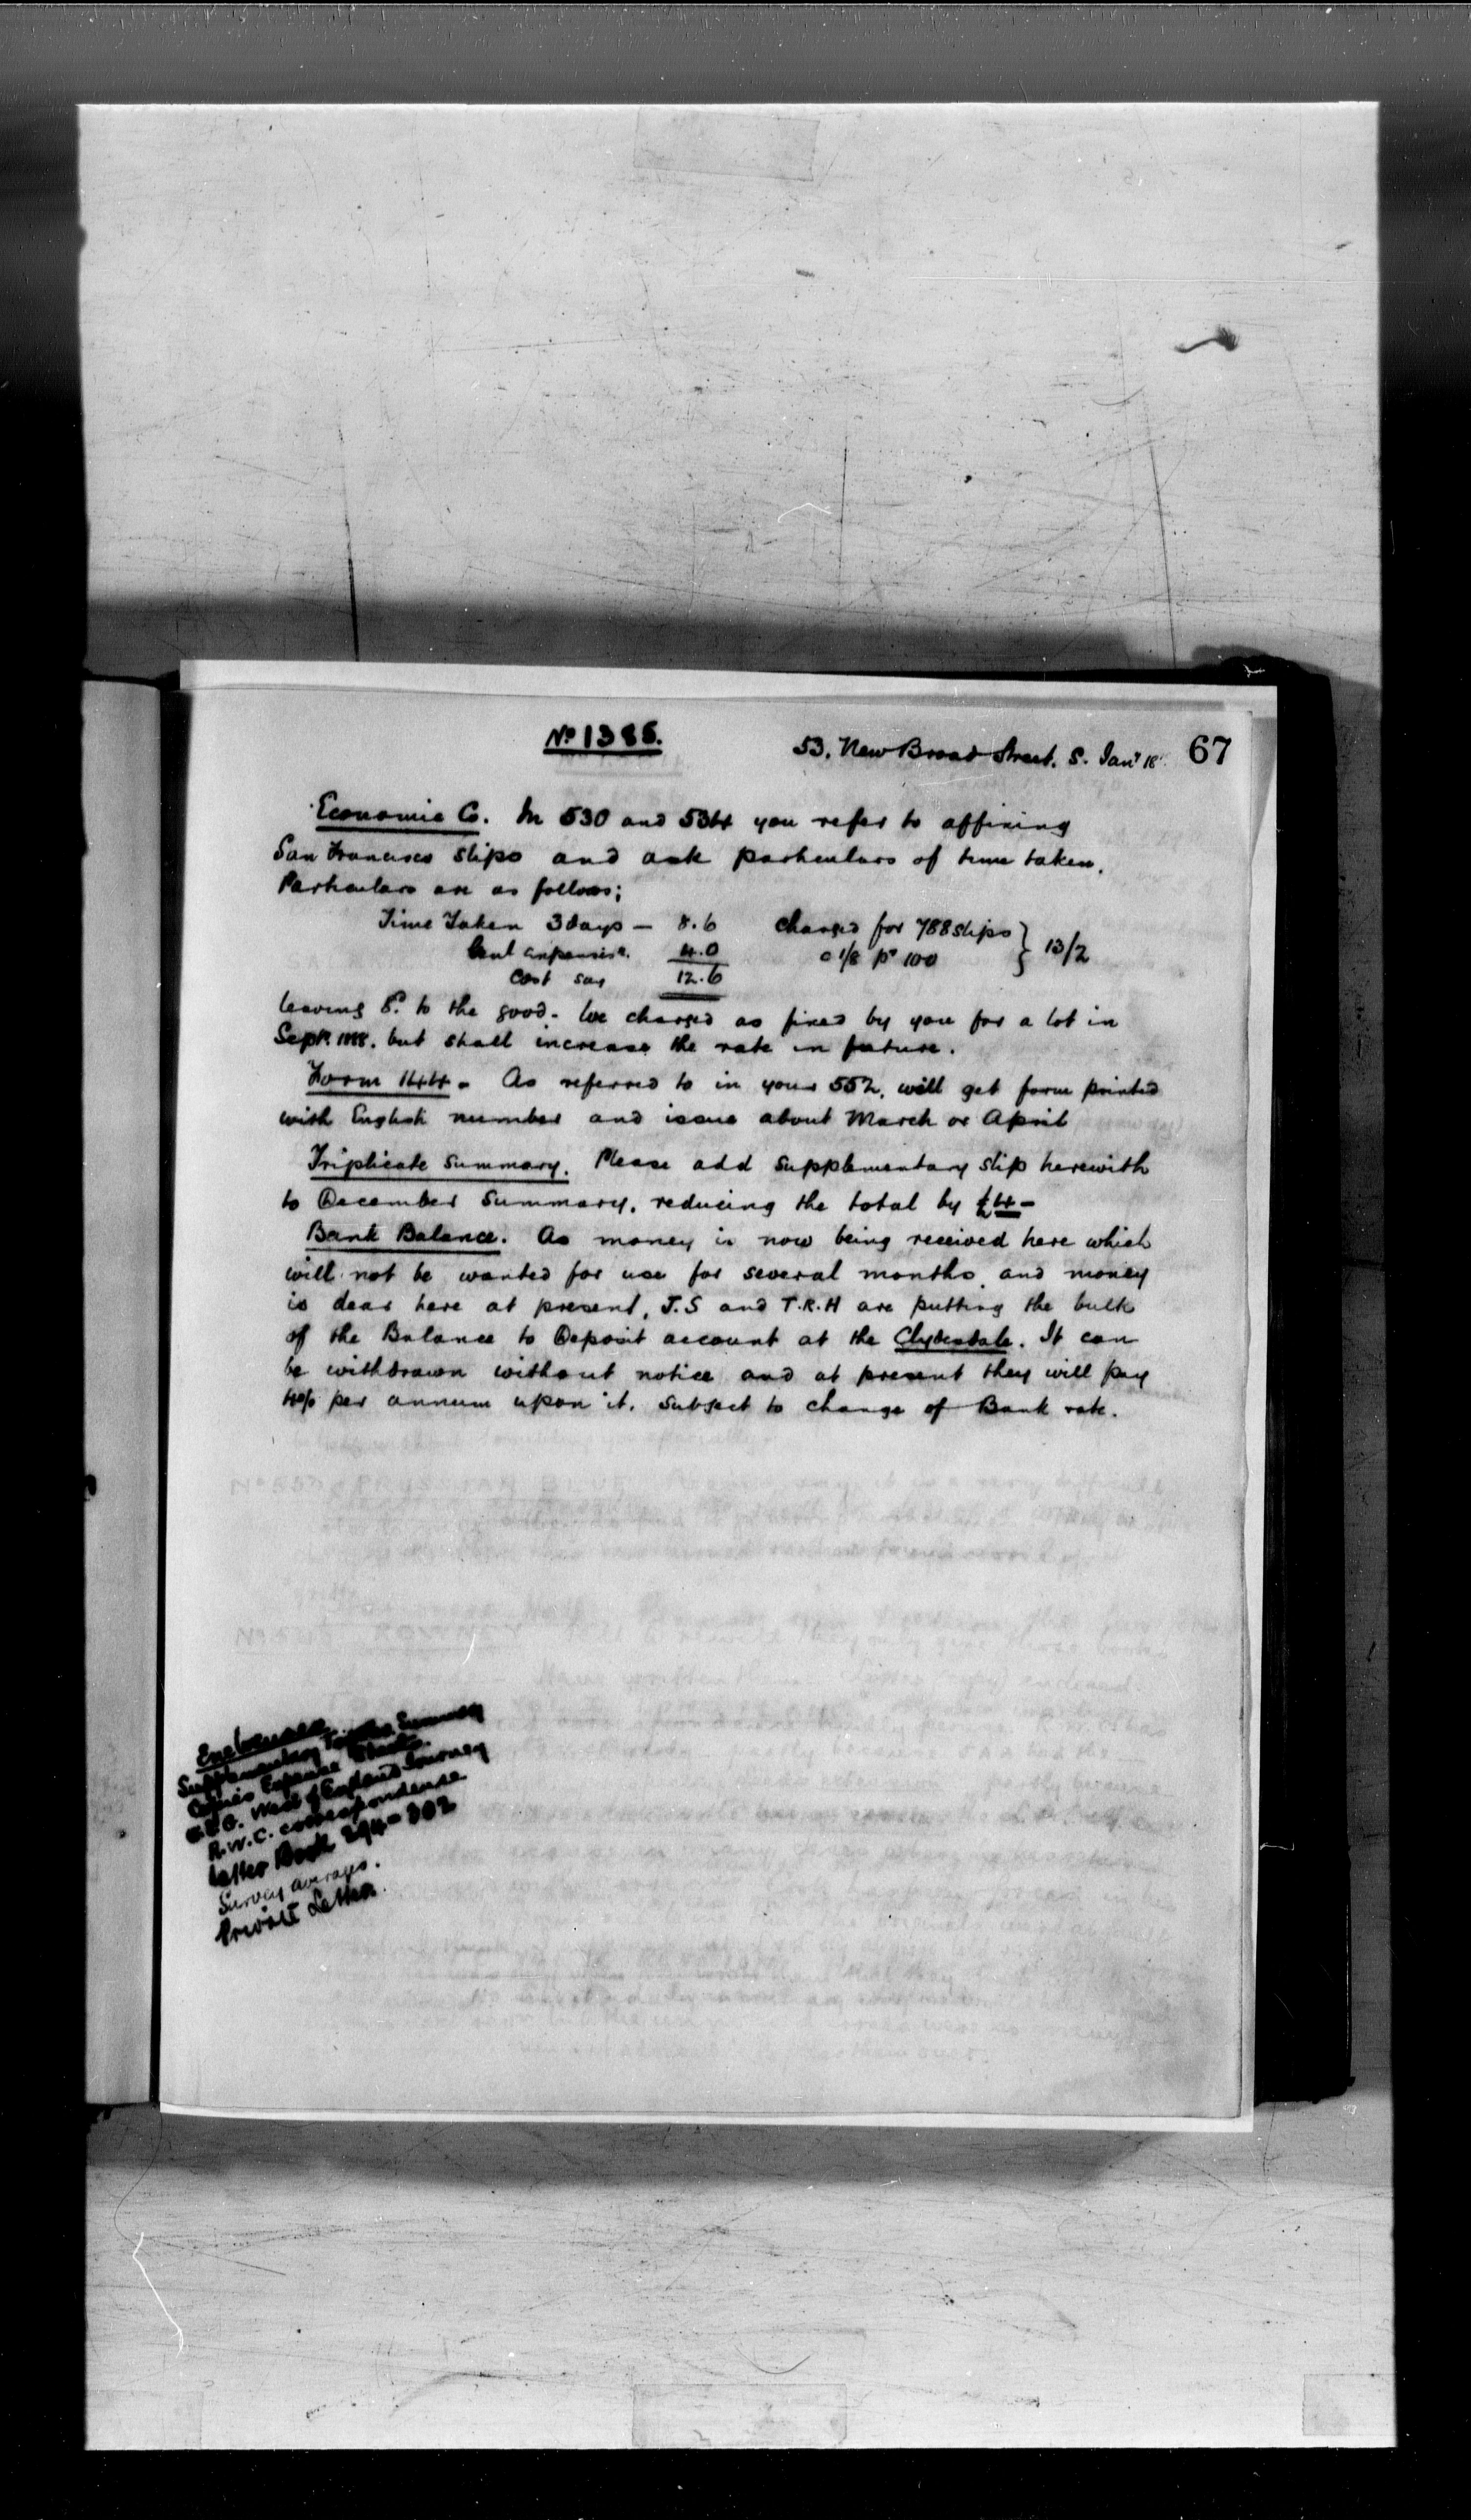 No 1385.
53, New Broad Street. 5. Jany 18
67
Economic Co. In 530 and 534 you refer to affixing
San Francisco slips and ask particulars of time taken.
Particulars are as follows;
Time Taken 3 days — 8.6 charged for 788 slips } 13/2
Cent expenses 4.0 @ 1/8 pr 100
Cost say 12.6
leaving 8d to the good. We charged as fixed by you for a lot in
Sept. 1888. but shall increase the rate in future.
Form 144. As referred to in your 552, will get form printed
with English number and issue about March or April
Triplicate Summary. Please add supplementary slip herewith
to December Summary, reducing the total by £4 –
Bank Balance. As money is now being received here which
will not be wanted for use for several months, and money
is dear here at present, J.S and T.R.H are putting the bulk
of the Balance to Deposit account at the Clydesdale. It can
be withdrawn without notice and at present they will pay
4% per annum upon it. Subject to change of Bank rate.
Enclosures
Supplementary Summary
Expense Sheets.
West of England Journey
R.W.C. correspondence
Letter Book 294–302
Survey averages.
Private Letter.